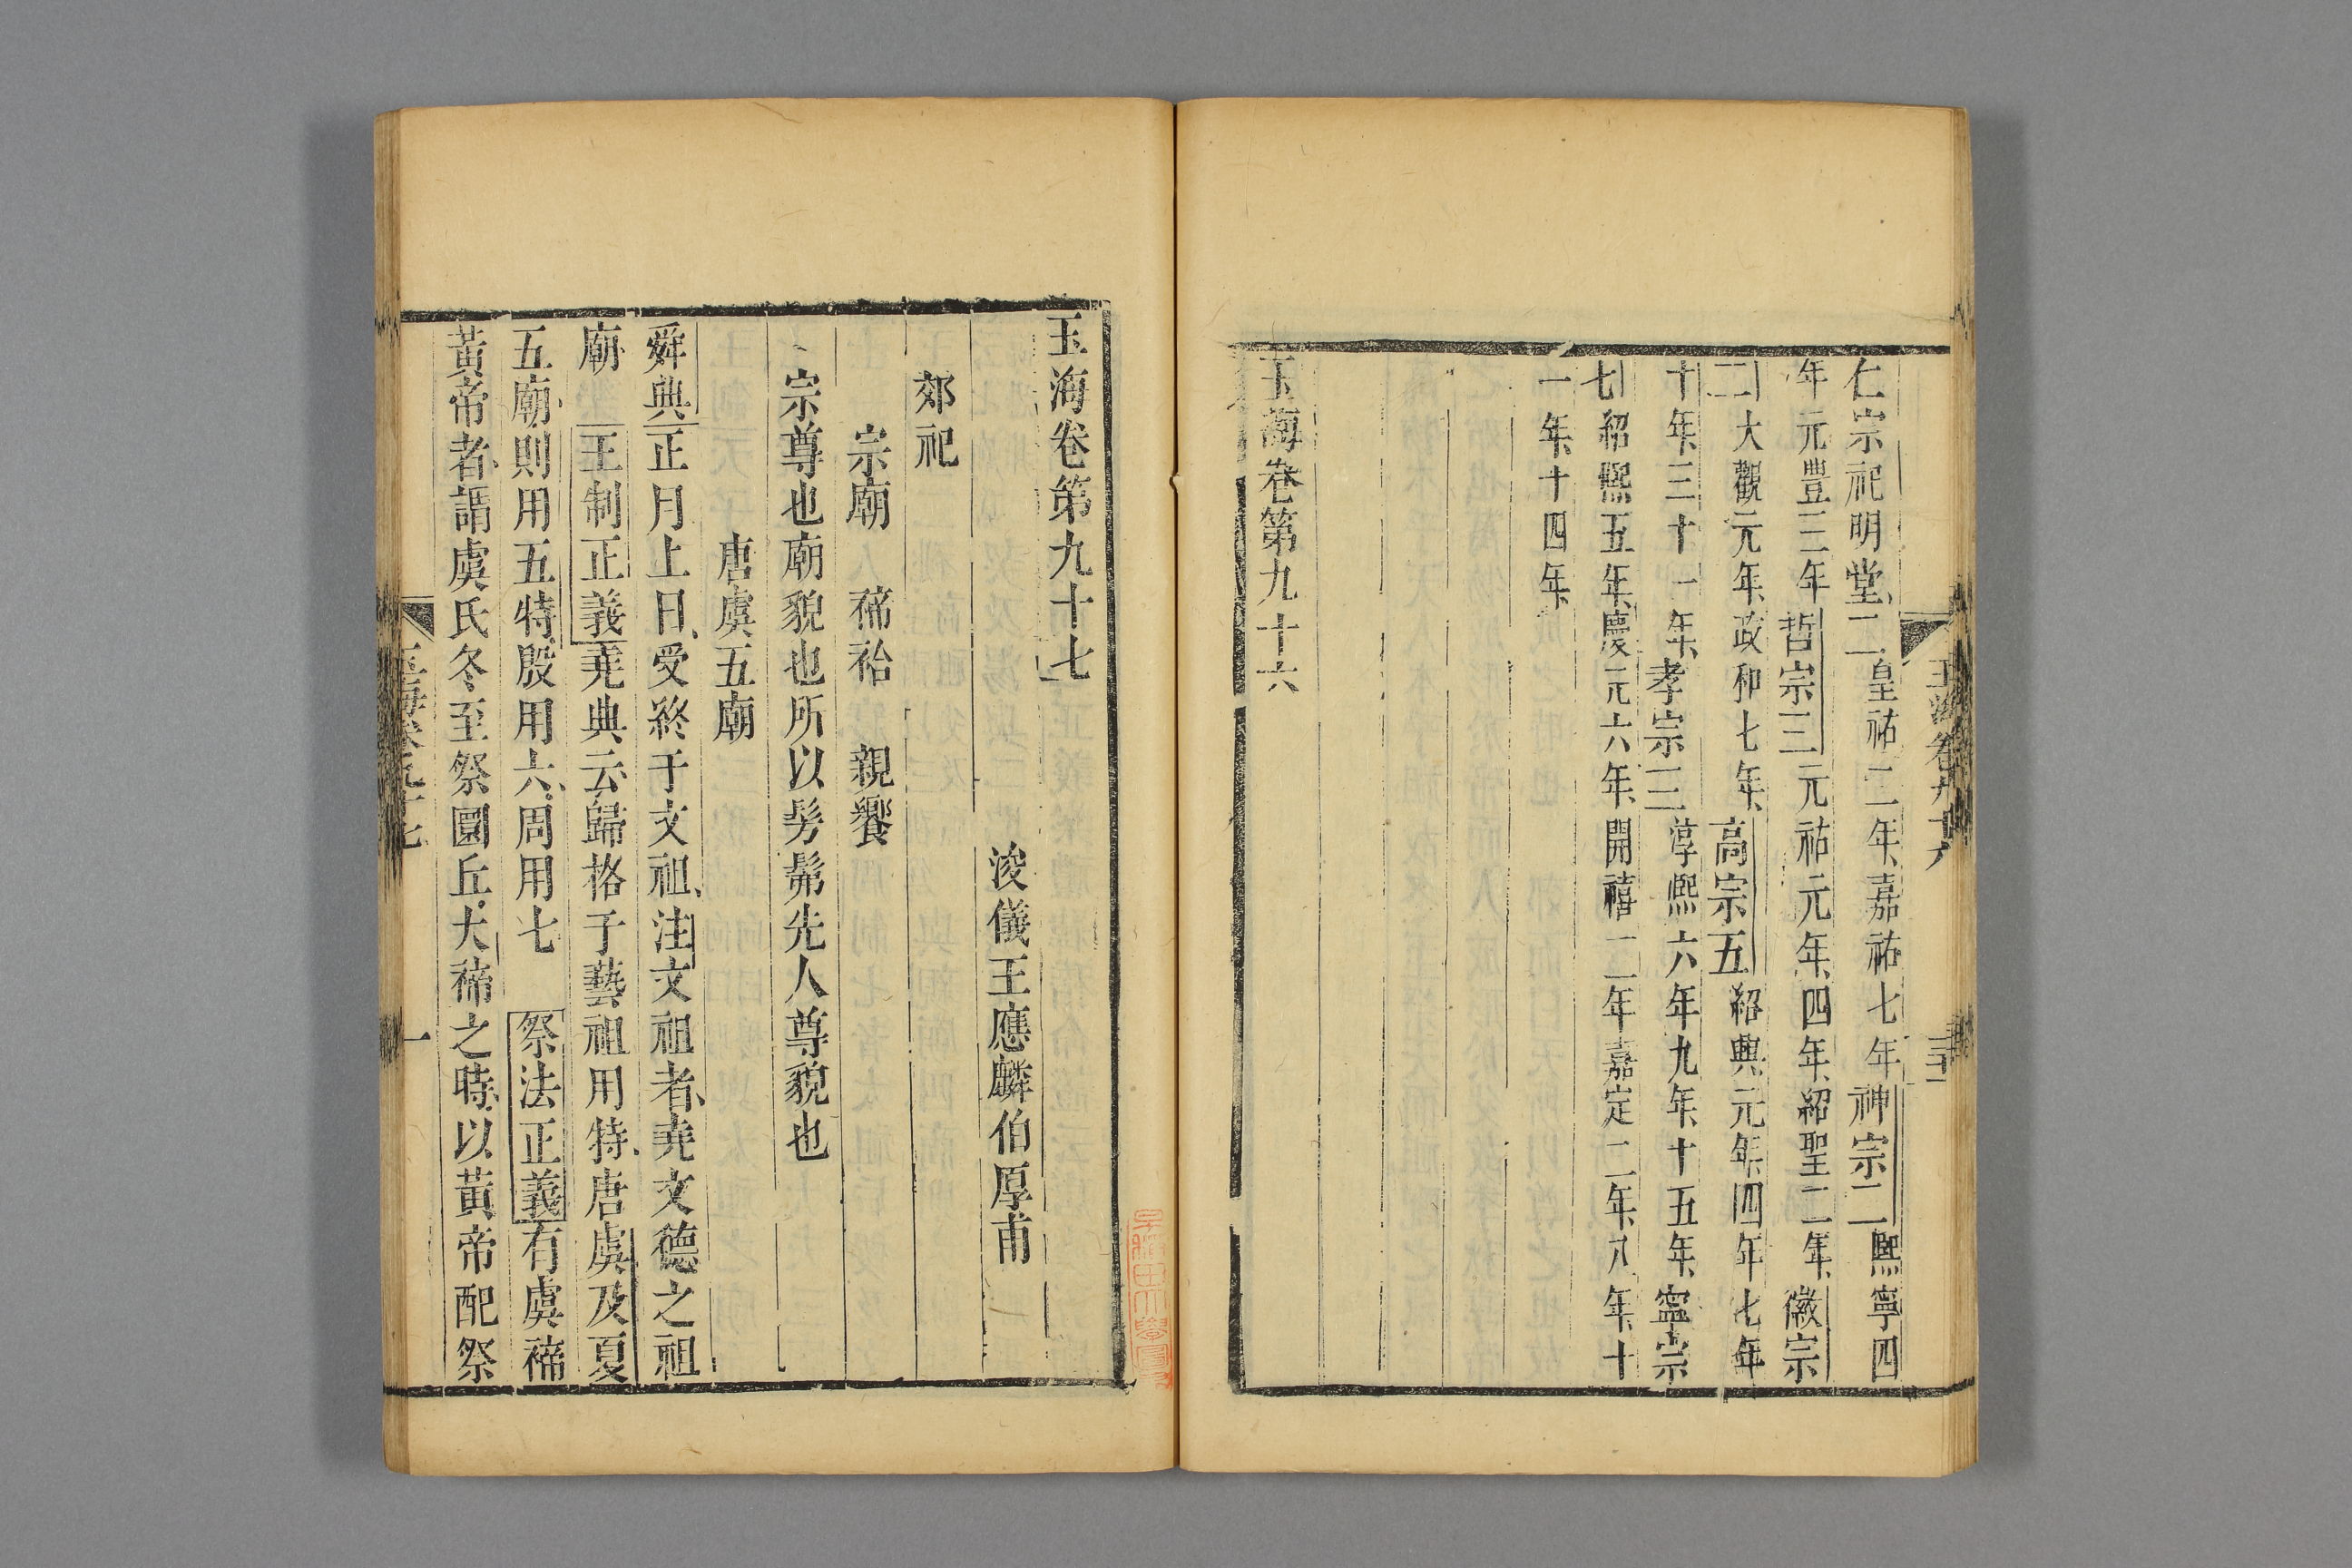 仁宗祀明堂二皇祐二年嘉祐七年神宗二熙寧四
年元豐三年哲宗三元祐元年四年紹聖二年徽宗
二大觀元年政和七年高宗五紹興元年四年七年
十年三十一年孝宗三淳熙六年九年十五年寧宗
七紹熙五年慶元六年開禧二年嘉定二年八年十
一年十四年
玉海卷第九十六
玉海卷第九十七
浚儀王應麟伯厚甫
郊祀
宗廟 禘祫 親饗
宗尊也廟貌也所以髣髴先人尊貌也
唐虞五廟
舜典正月上日受終于文祖注文祖者堯文德之祖
廟 王制正義堯典云歸格于藝祖用特唐虞及夏
五廟則用五特殷用六周用七 祭法正義有虞禘
黃帝者謂虞氏冬至祭圜丘大禘之時以黃帝配祭
玉海卷九十七 一